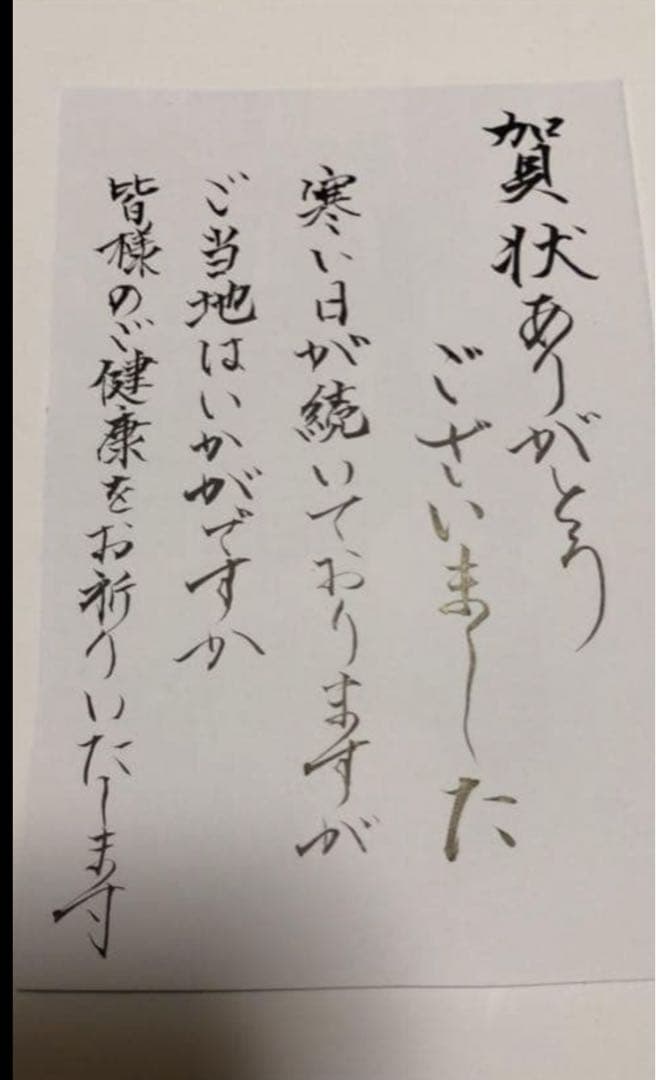 賀状ありがとう
ございました
寒い日が続いておりますが
ご当地はいかがですか
皆様のご健康をお祈りいたします